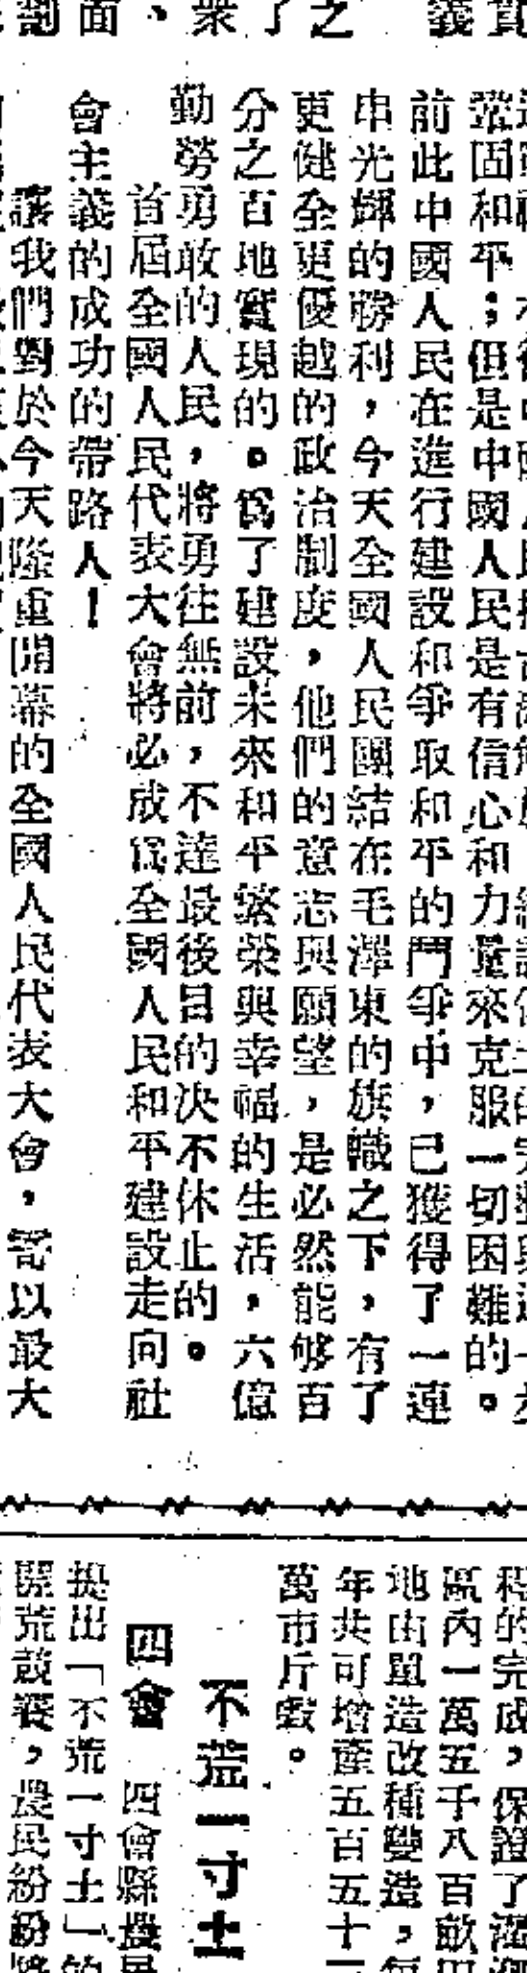 鞏固和平；但是中國人民是有信心和力量來克服一切困難的。
前此中國人民在進行建設和爭取和平的鬥爭中，已獲得了一連
串光輝的勝利，今天全國人民團結在毛澤東的旗幟之下，有了
更健全更優越的政治制度，他們的意志與願望，是必然能够百
分之百地實現的。爲了建設未來和平繁榮與幸福的生活，六億
勤勞勇敢的人民，將勇往無前，不達最後目的决不休止的。
首屆全國人民代表大會將必成爲全國人民和平建設走向社
會主義的成功的帶路人！
讓我們對於今天隆重開幕的全國人民代表大會，寄以最大
程的完成，保證了
區內一萬五千八百畝田
地由單造改種雙造，每
年共可增產五百五十
萬市斤穀。
不荒一寸土
四會 四會縣農民
提出「不荒一寸土」的
開荒鼓舞，農民紛紛將